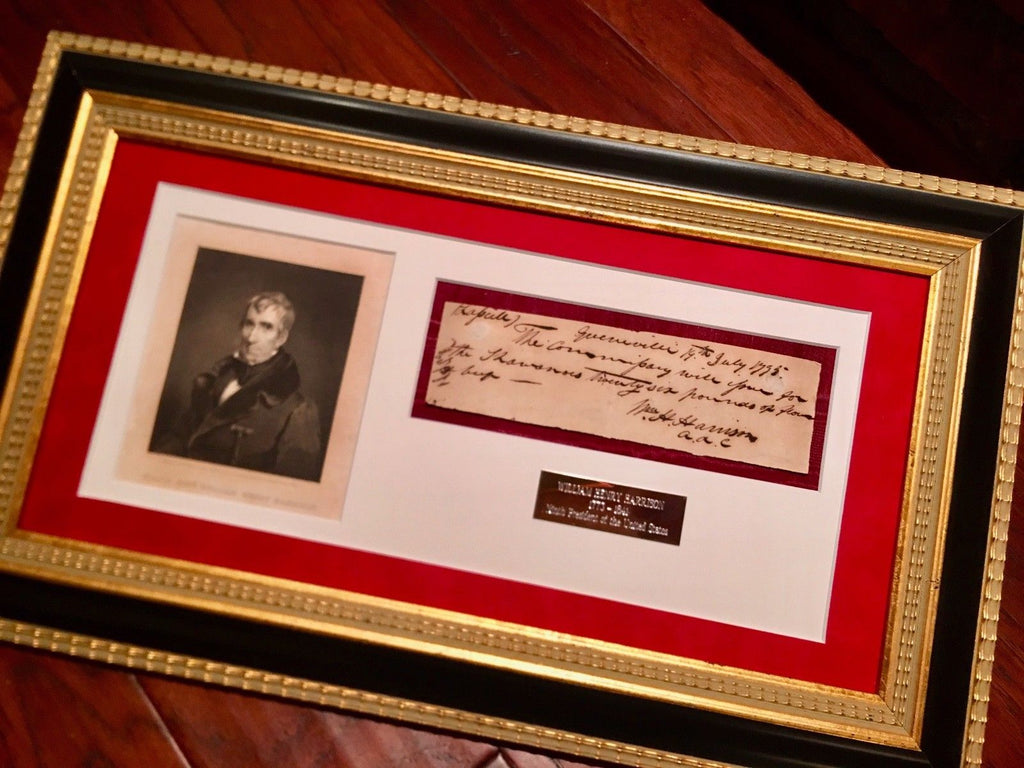 Greeneville 19th July 1795
The Commissary will your for
the Shawanoes twenty six pounds of
of beef —
Wm. H. Harrison
a.d.C
WILLIAM HENRY HARRISON
1773 - 1841
Ninth President of the United States